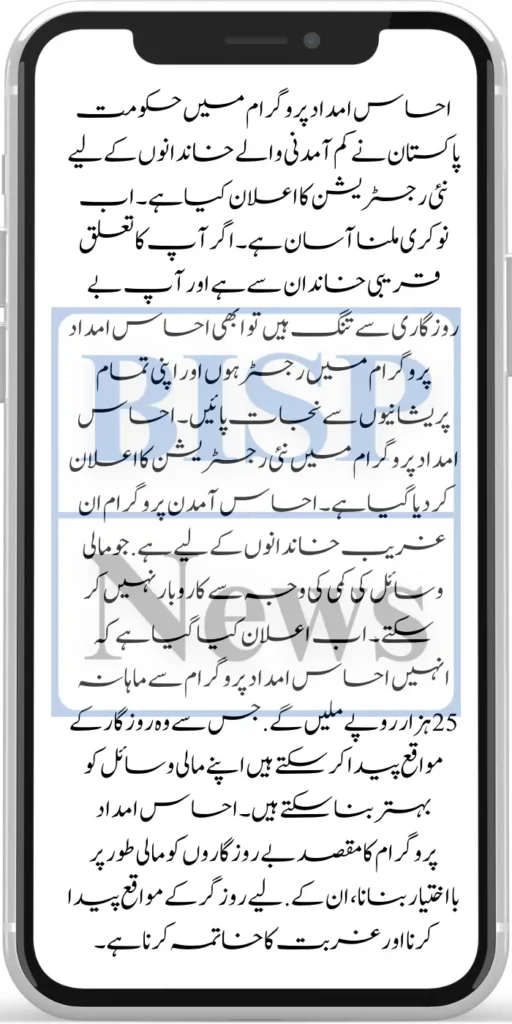 احساس امداد پروگرام میں حکومت
پاکستان نے کم آمدنی والے خاندانوں کے لیے
نئی رجسٹریشن کا اعلان کیا ہے۔ اب
نوکری ملنا آسان ہے۔ اگر آپ کا تعلق
قریبی خاندان سے ہے اور آپ بے
روزگاری سے تنگ ہیں تو ابھی احساس امداد
پروگرام میں رجسٹر ہوں اور اپنی تمام
پریشانیوں سے نجات پائیں۔ احساس
امداد پروگرام میں نئی رجسٹریشن کا اعلان
کر دیا گیا ہے۔ احساس آمدن پروگرام ان
غریب خاندانوں کے لیے ہے. جو مالی
وسائل کی کمی کی وجہ سے کاروبار نہیں کر
سکتے۔ اب اعلان کیا گیا ہے کہ
انہیں احساس امداد پروگرام سے ماہانہ
25 ہزار روپے ملیں گے. جس سے وہ روزگار کے
مواقع پیدا کر سکتے ہیں اپنے مالی وسائل کو
بہتر بنا سکتے ہیں۔ احساس امداد
پروگرام کا مقصد بے روزگاروں کو مالی طور پر
بااختیار بنانا، ان کے. لیے روزگر کے مواقع پیدا
کرنا اور غربت کا خاتمہ کرنا ہے۔
BISP
News